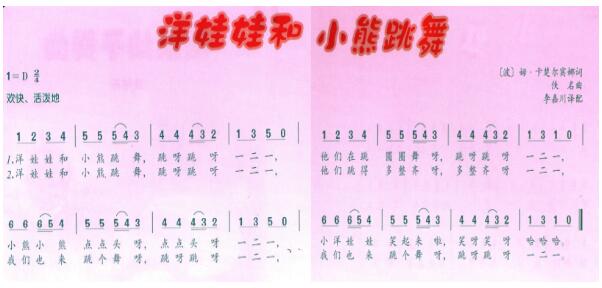 洋娃娃和小熊跳舞
1=D 2/4
欢快、活泼地
〔波〕姆·卡楚尔宾娜词
佚 名曲
李嘉川译配
1 2 3 4 | 5 5 5 4 3 | 4 4 4 3 2 | 1 3 5 0 |
1.洋 娃 娃 和 小 熊 跳 舞, 跳 呀 跳 呀 一 二 一,
2.洋 娃 娃 和 小 熊 跳 舞, 跳 呀 跳 呀 一 二 一,
1 2 3 4 | 5 5 5 4 3 | 4 4 4 3 2 | 1 3 5 0 |
他 们 在 跳 圆 圈 舞 呀, 跳 呀 跳 呀 一 二 一,
他 们 跳 得 多 整 齐 呀, 多 整 齐 呀 一 二 一,
6 6 6 5 4 | 5 5 5 4 3 | 4 4 4 3 2 | 1 3 5 0 |
小 熊 小 熊 点 点 头 呀, 点 点 头 呀 一 二 一,
我 们 也 来 跳 个 舞 呀, 跳 呀 跳 呀 一 二 一,
6 6 6 5 4 | 5 5 5 4 3 | 4 4 4 3 2 | 1 3 1 0
小 洋 娃 娃 笑 起 来 啦, 笑 呀 笑 呀 哈 哈 哈.
我 们 也 来 跳 个 舞 呀, 跳 呀 跳 呀 一 二 一.